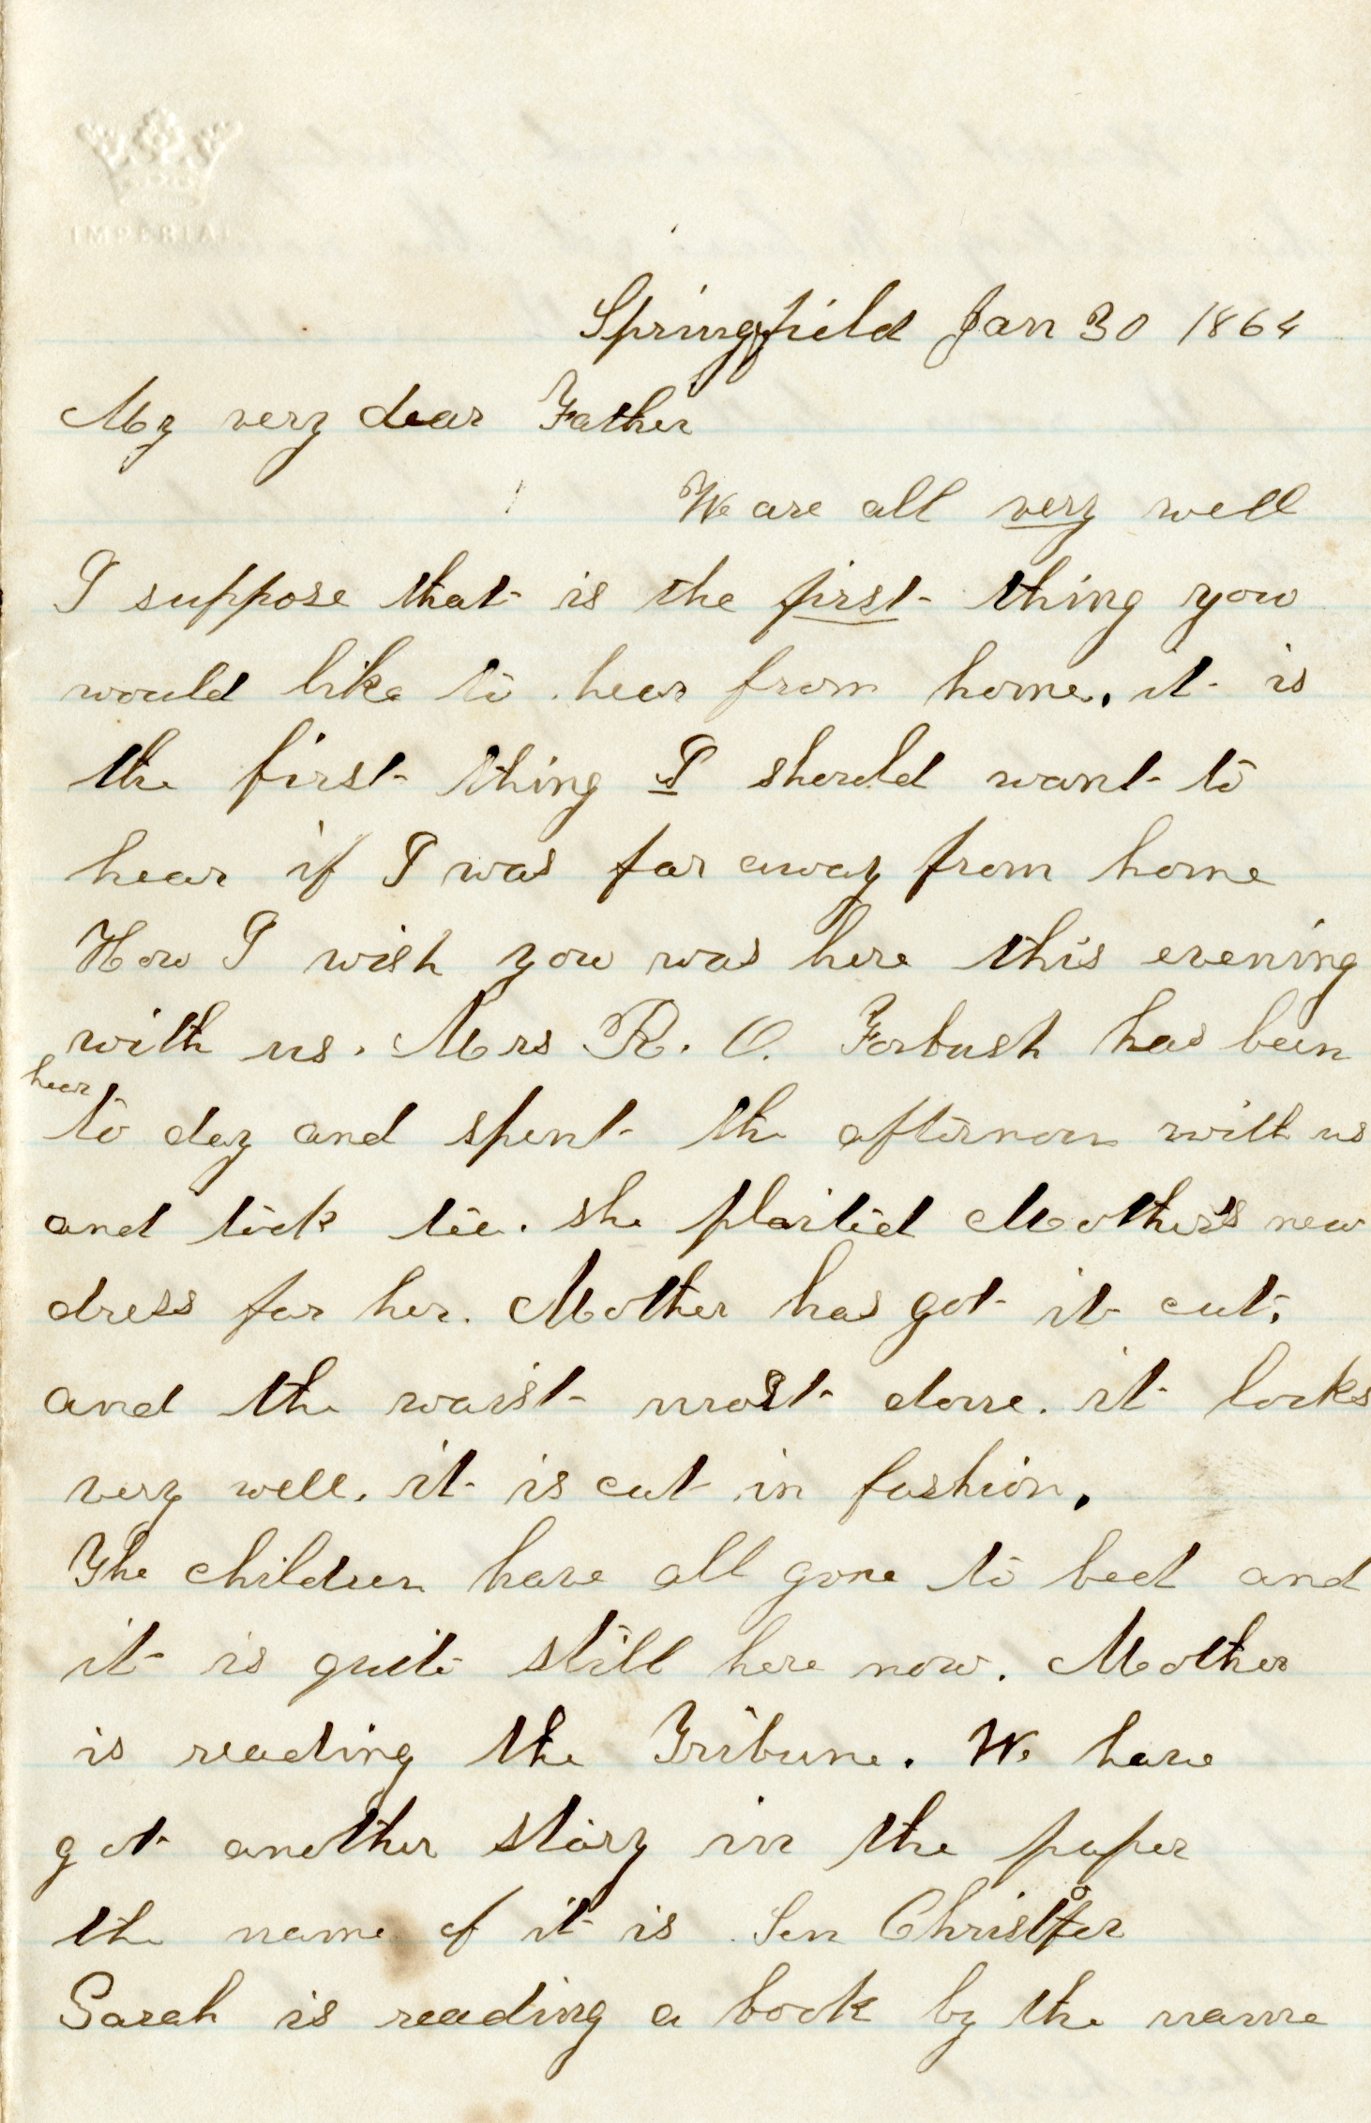 IMPERIAL
Springfield Jan 30 1864
My very dear Father
We are all very well
I suppose that is the first thing you
would like to hear from home, it is
the first thing I should want to
hear if I was far away from home
How I wish you was here this evening
with us. Mrs R. O. Forbush has been
hear
to day and spent the afternoon with us
and took tee. she plaited Mother's new
dress for her. Mother has got it cut,
and the waist most done. it looks
very well. it is cut in fashion.
The children have all gone to bed and
it is quite still here now. Mother
is reading the Tribune. We have
got another story in the paper
the name of it is Christofer
Sarah is reading a book by the name